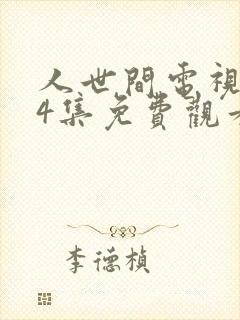 人世間電視
4集免費觀
李德楨